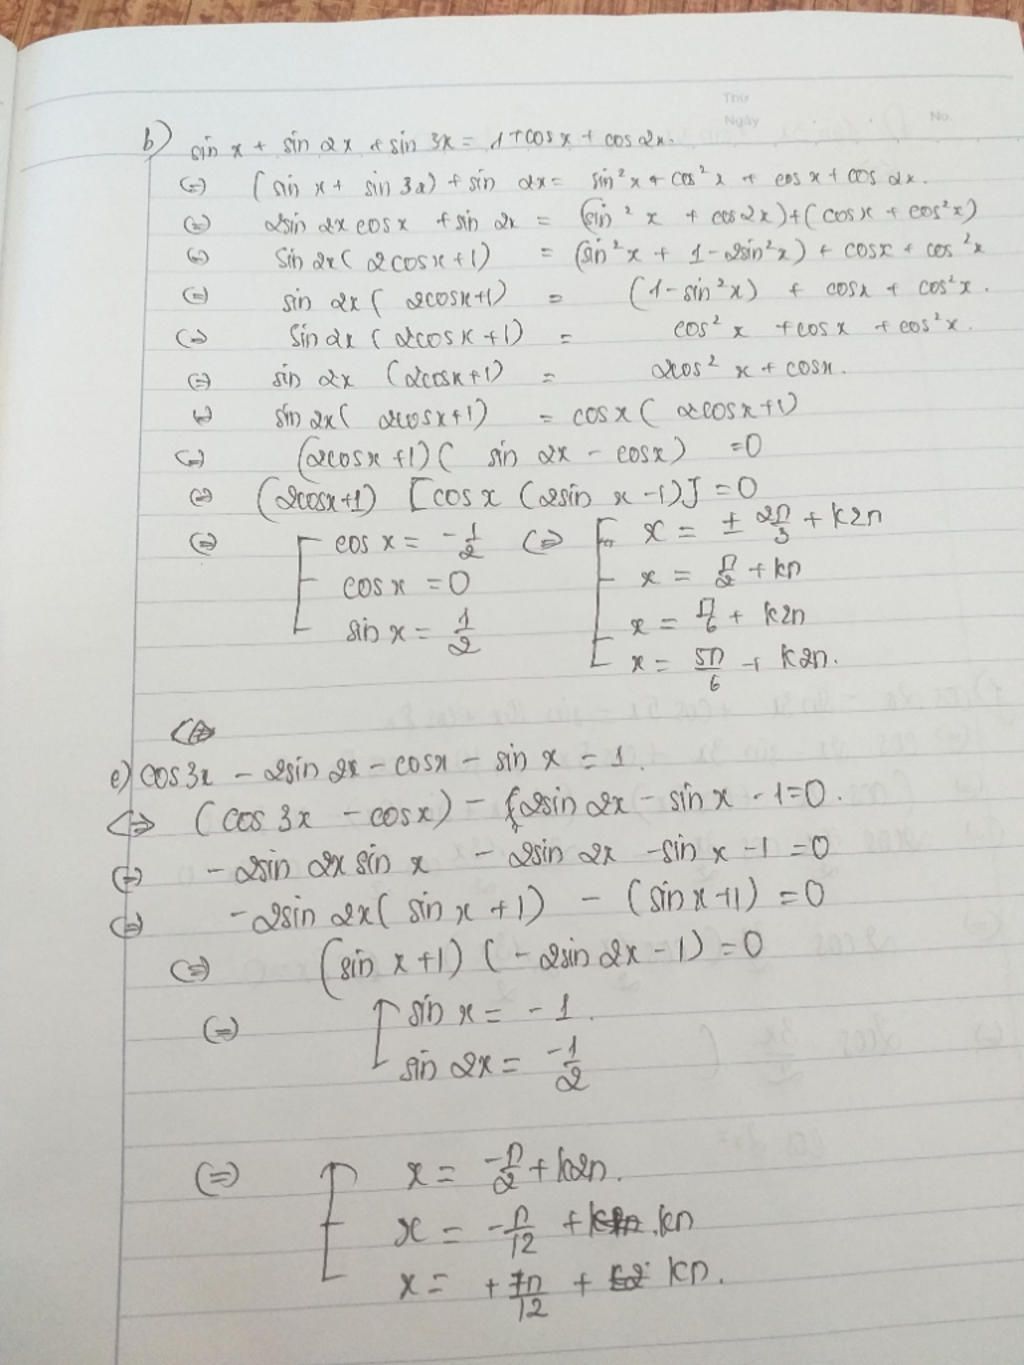 Thứ
Ngày
No.
b) sin x + sin 2x + sin 3x = 1 + cos x + cos 2x.
(=) (sin x + sin 3x) + sin 2x = sin² x + cos² x + cos x + cos 2x.
(=) 2sin 2x cos x + sin 2x = (sin² x + cos 2x) + (cos x + cos² x)
(=) Sin 2x ( 2cos x + 1) = (sin² x + 1 - 2sin² x) + cos x + cos² x
(=) sin 2x ( 2cos x + 1) = (1 - sin² x) + cos x + cos² x.
(=) Sin 2x ( 2cos x + 1) = cos² x + cos x + cos² x.
(=) sin 2x (2cos x + 1) = 2cos² x + cos x.
(=) sin 2x ( 2cos x + 1) = cos x ( 2cos x + 1)
(=) (2cos x + 1) ( sin 2x - cos x) = 0
(=) (2cos x + 1) [cos x (2sin x - 1)] = 0
(=) [ cos x = -1/2 (=) [ x = ± 2π/3 + k2π
cos x = 0 x = π/2 + kπ
sin x = 1/2 x = π/6 + k2π
x = 5π/6 + k2π.
e) cos 3x - 2sin 2x - cos x - sin x = 1.
<=> (cos 3x - cos x) - (2sin 2x - sin x - 1 = 0.
(=) - 2sin 2x sin x - 2sin 2x - sin x - 1 = 0
(=) - 2sin 2x ( sin x + 1) - (sin x + 1) = 0
(=) (sin x + 1) (- 2sin 2x - 1) = 0
(=) [ sin x = - 1.
sin 2x = -1/2
(=) [ x = -π/2 + k2π.
x = -π/12 + kπ
x = + 7π/12 + kπ.